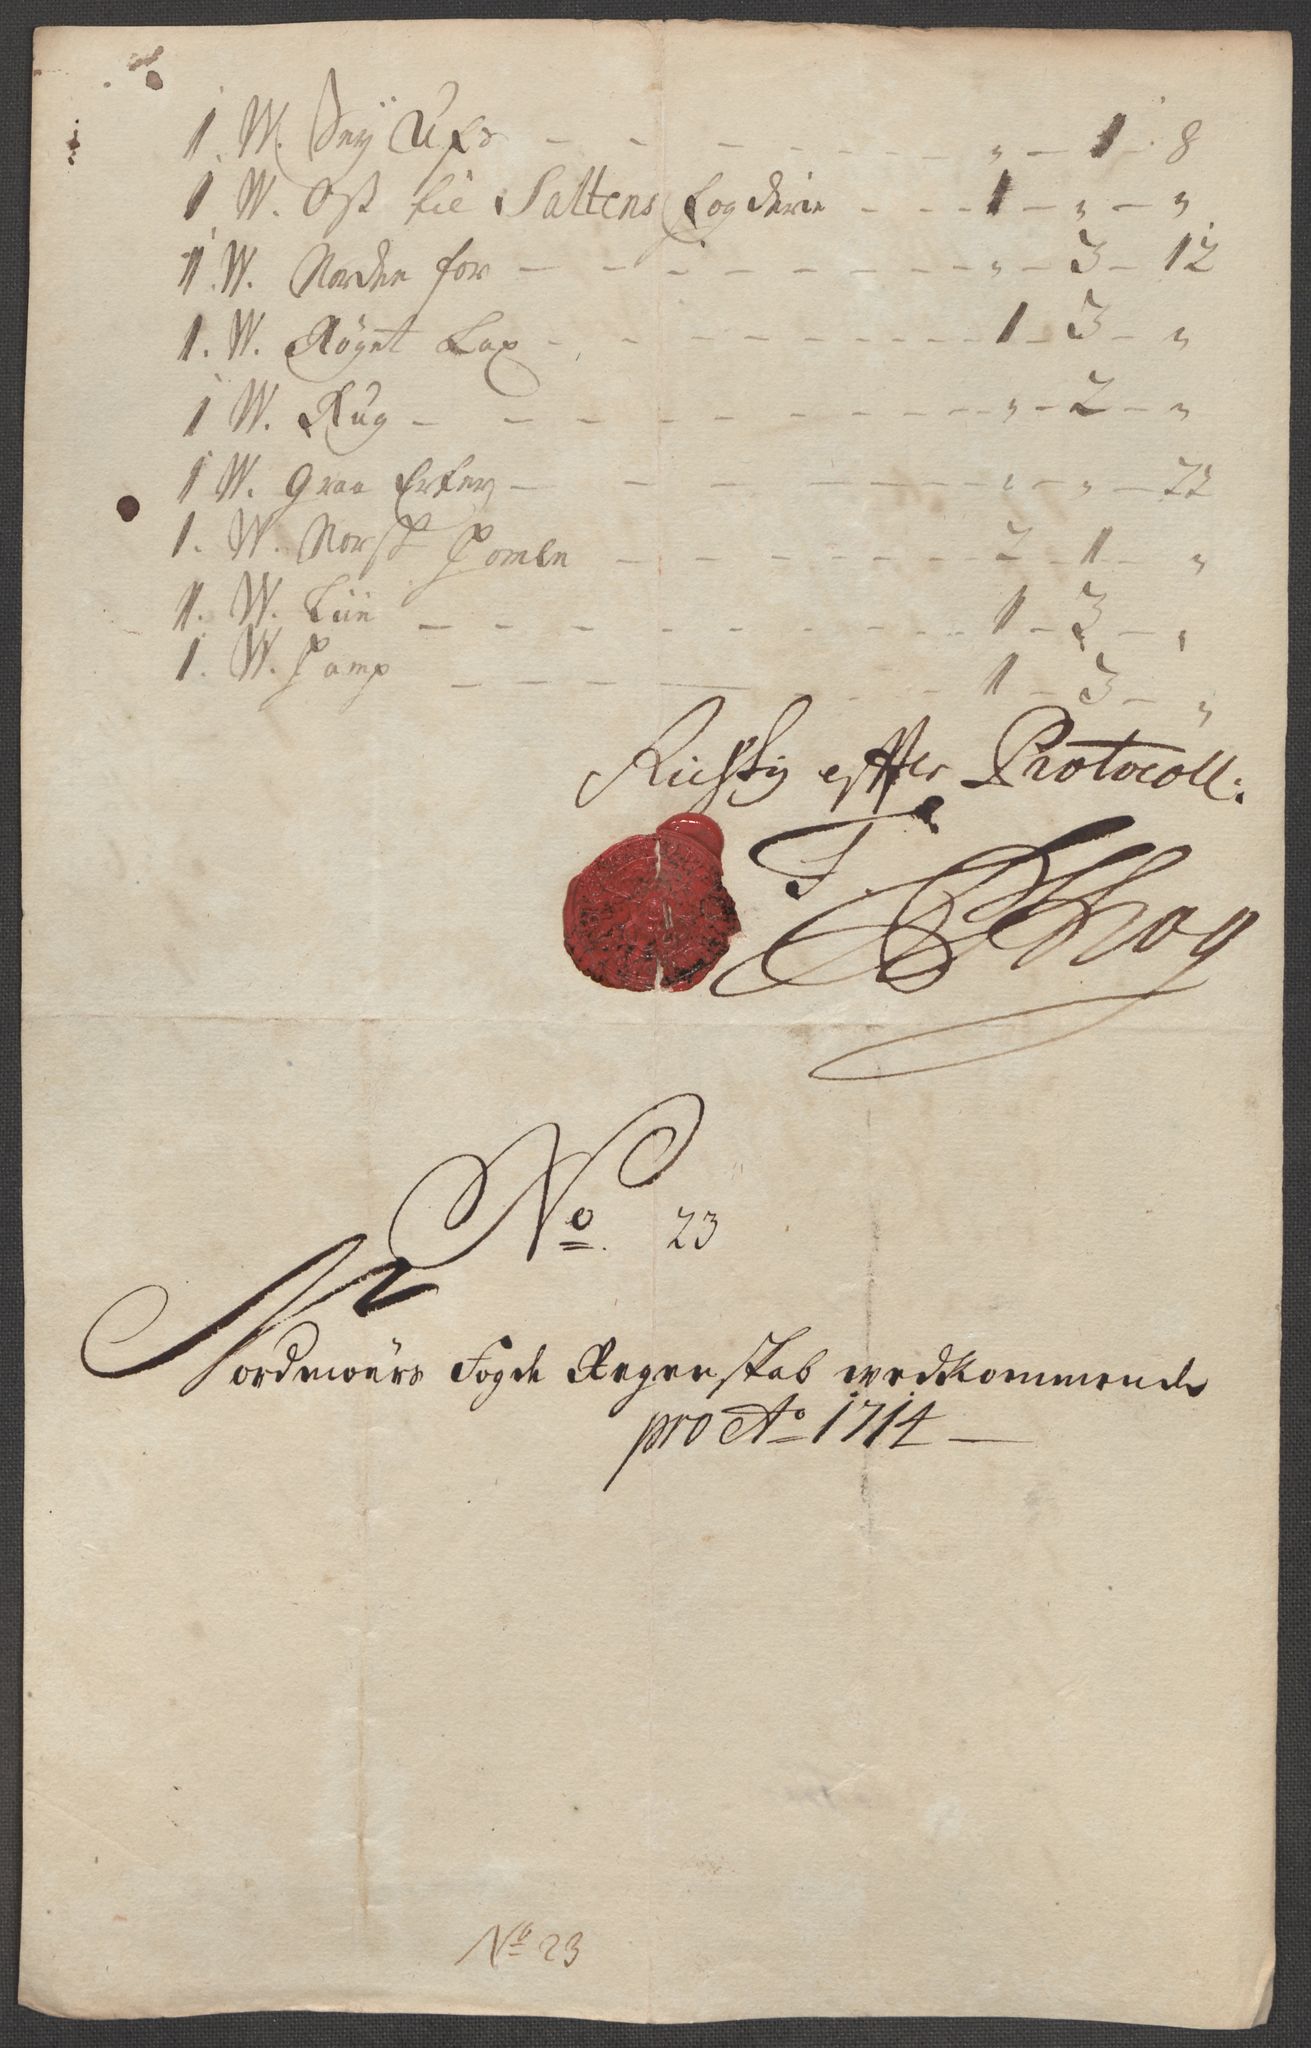 1 W. Seÿ Ufs — — — — „ — 1 — 8
1 W. Ost til Saltens Fogderie — — 1 — „ — „
1. W. Norden for — — — — „ — 3 — 12
1. W. Røget Lax — — — — 1 — 3 — „
1 W. Rug — — — — „ — 2 — „
1 W. graa Erter — — — — „ — „ — 22
1. W. Norsk Homle — — — — 2 — 1 — „
1. W. Liin — — — — 1 — 3 — „
1. W. Hamp — — — — 1 — 3 — „
Rigtig effter Protocoll:
T
No. 23
Nordmørs Fogde Regenskab wedkommende
pro Ao 1714 —
No 23